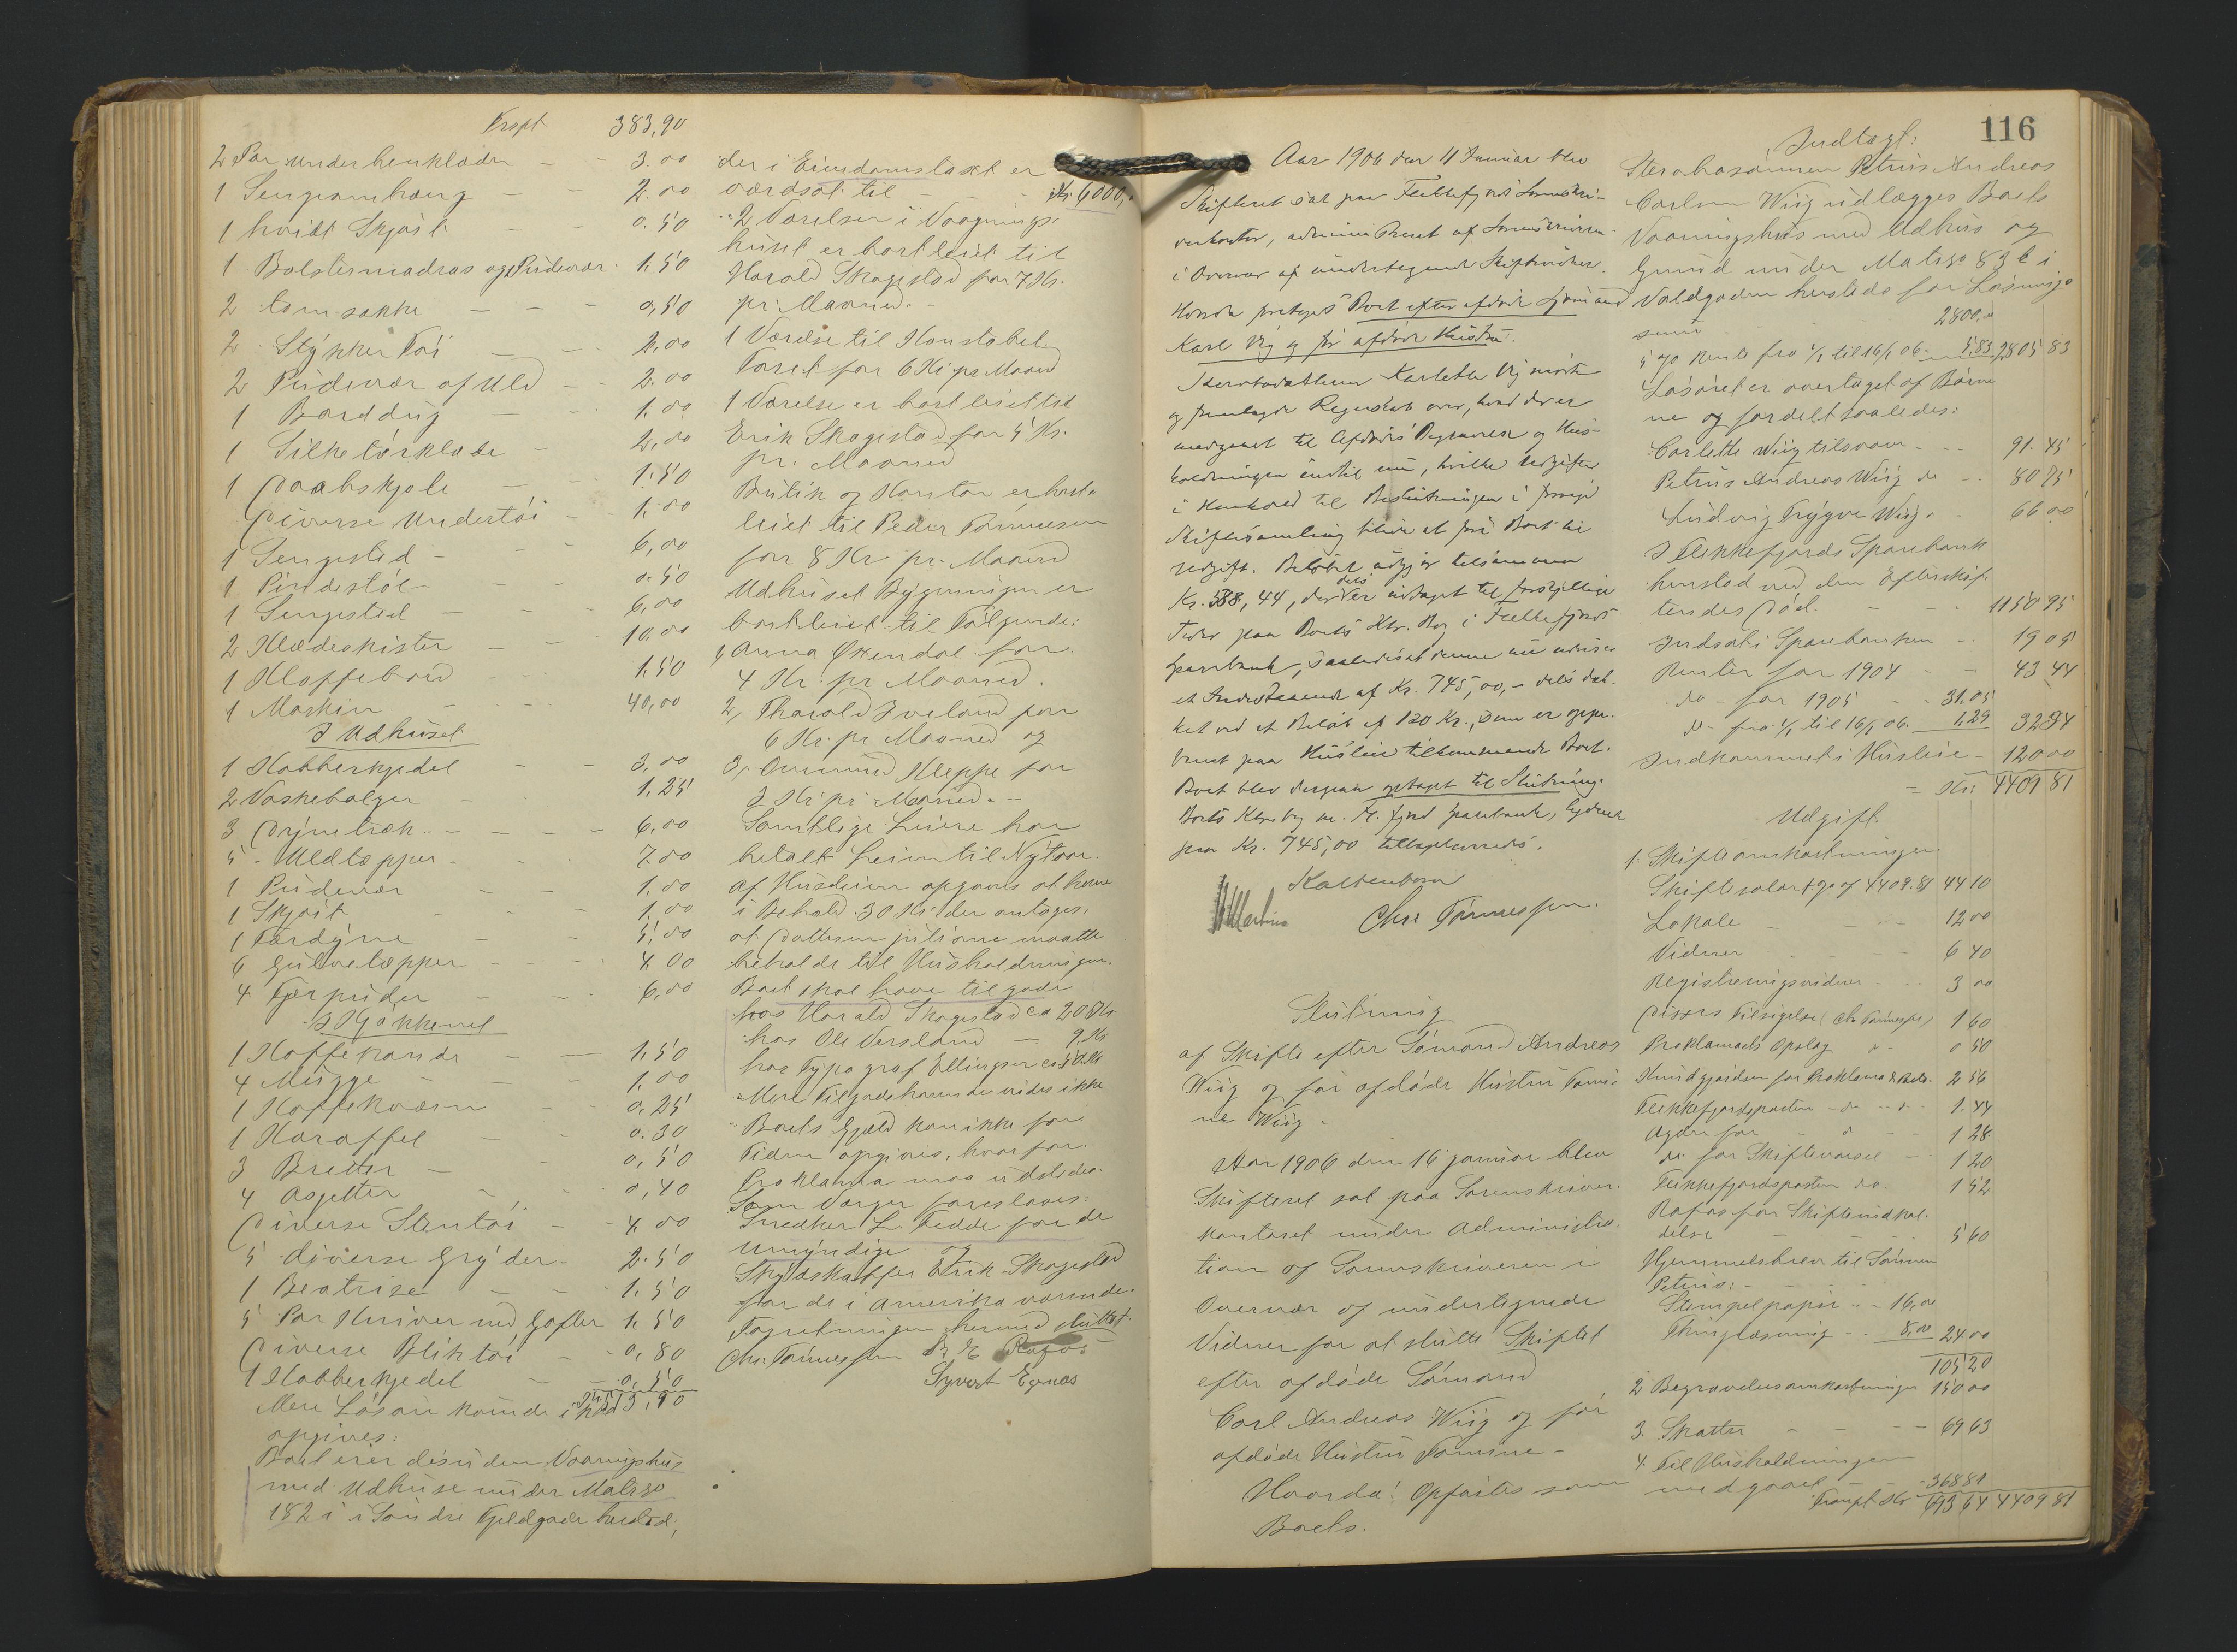 Trspt 383,90
2 Par Underbenklæder - - 3.00
1 Sengeomhæng - - 2.00
1 hvidt Skjørt - - 0.50
1 Bolstermadras og Pudevar 1.50
2 tomsække - - 0,50
2 Stykker Tøi - 2,00
2 Pudevar af Uld - - 2.00
1 Borddug - - 1.00
1 Silketørklæde - 2,00
1 Daabskjole - - 1.50
Diverse Undertøi - 1.00
1 Sengested - - 6,00
1 Pindestol - - 0.50
1 Sengested - - 6,00
2 Klædeskister - 10,00
1 Klaffebord - - 1,50
1 Maskin - - 40,00
I Udhuset
1 Kobberkjedel - - 3,00
2 Vaskebaljer - 1,25
3 Dynetræk - - - 6,00
5 Uldtæpper - - 7.00
1 Pudevar - - 1,00
1 Skjørt - - 1,00
1 Færdyne - - 5,00
6 Gulvetæpper - - 4.00
4 Fjærpuder - - 6,00
I Kjøkkenet
1 Kaffekande - - 1,50
4 Mugge - - 1,00
1 Kaffekværn - 0,25
1 Karaffel - - 0.30
3 Bretter - - 0,50
4 Asjetter - 0,40
Diverse Stentøi - - 4,00
5 diverse Gryder - 2.50
1 Beatrise - - 1.50
5 Par Kniver med Gafler 1,50
Diverse Bliktøi - - 0,80
1 Kobberkjedel - 0,50
Mere Løsøre kunde ikke
opgives:
Boet eier desuden Vaaningshus
med Udhuse under Matr no
182 i i Søndre Fjeldgade hersted,
der i Eiendomstaxt er
værdsat til - - Kr. 6000,
2 Værelser i Vaanings-
huset er bortleiet til
Harald Skogestad for 7 Kr.
pr. Maaned. -
1 Værelse til Konstabel
Foret for 6 Kr pr Maaned
1 Værelse er bortleiet til
Erik Skogestad for 5 Kr.
pr. Maaned
Butik og Kontor er bort-
leiet til Peder Tønnessen
for 8 Kr pr. Maaned
Udhuset Bygningen er
bortleiet til Følgende:
1, Anna Øksendal for
4 Kr. pr Maaned.
2, Tharald Iveland for
6 Kr. pr Maaned og
3, Ommund Kleppe for
3 Kr pr Maaned. -
Samtlige Leiere har
betalt Leien til Nytaar.
Af Husleien opgaves at have
i Behold 30 Kr. der antoges,
at Datteren maatte
beholde til Husholdningen.
Boet skal have tilgode
hos Harald Skogestad ca 20 Kr
hos Ole Versland - 9 Kr
hos Typograf Ellingsen ca 50 Kr
Mere Tilgodehavende vides ikke
Boets Gjæld kan ikke for
Tiden opgives, hvorfor
Proklama maa udstedes.
Som Værger foreslaaes:
Snedker L. Fedde for de
umyndige
Skydskaffer Erik Skogestad
for de i Amerika værende.
Foretningen hermed sluttet.
Chr. Tønnessen
Syvert Egenes
116
Aar 1906 den 11 Januar blev
Skifteret sat paa Flekkefjords Sorenskri-
verkontor, administreret af Sorenskriveren
i Overvær af undertegnede Skiftevidner.
Hvorda foretoges Boet efter afdøde Sømand
Karl Vig og før afdøde Hustru.
Stervbodatteren Karlette Vig mødte
og fremlagde Regnskab over, hvad der er
medgaaet til Afdødes Begravelse og Hus-
holdningen indtil nu, hvilke Udgifter
i Henhold til Beslutningen i forrige
Skiftesamling bliver at føre Boet til
Udgift. Beløbet udgjør tilsammen
Kr. 588,44, der dels er udtaget til forskjellige
Tider paa Boets Ktr. Bog i Flekkefjords
Sparebank, saaledes at denne nu udviser
et Indestaaende af Kr. 745,00, - dels dæk-
ket ved et Beløb af 120 Kr., som er oppe-
baaret paa Husleie tilkommende Boet.
Boet blev derpaa optaget til Slutning.
Boets Ktr. bog m. Fl. fjord Sparebank, lydende
paa Kr. 745,00 tillagdes.
Kaltenborn
Chr Tønnessen.
Slutning
af Skifte efter Sømand Andreas
Wiig og før afdøde Hustru Tomi-
ne Wiig -
Aar 1906 den 16 januar blev
Skifteret sat paa Sorenskriver-
kontoret under Administra-
tion af Sorenskriveren i
Overvær af undertegnede
Vidner for at slutte Skiftet
efter afdøde Sømand
Carl Andreas Wiig og før
afdøde Hustru Tomine -
Hvorda: Opførtes som
Boets.
Indtægt:
Stervbosønnen Petrus Andreas
Carlsen Wiig udlægges Boets
Vaaningshus med Udhus og
Grund under Matr no 83 b i
Voldgaden hersteds for Løsnings-
sum - - 2800.00
5 % Rente fra 1/1 til 16/1 06 - 5,83 2805 83
Løsøret er overtaget af Børne-
ne og fordelt saaledes:
Carlette Wiig tilsvare - - 91.45
Petrus Andreas Wiig do - 80 75
Ludvig Trygve Wiig - 66 00
I Flekkefjords Sparebank
henstod ved den Efterskif-
tendes Død. - - 1150 95
Indsat i Sparebanken - 19 05
Renter for 1904 - - 43 44
do - for 1905 - 31.05
do - fra 1/1 til 16/1 06. 1,29 32 34
Indkommet i Husleie - 120 00
- Kr: 4409 81
Udgift.
1. Skifteomkostninger.
Skiftesalær 1 % af 4409.81 44 10
Lokale - - 12 00
Vidner - - 6 40
Registreringsvidner - 3 00
Divers Tilsigelse (Chr Tønnessen) 1 60
Proklamaets Opslag - 0 50
Kundgjørelsen for Proklama 2 56
Flekkefjordsposten - do - 1.44
Agder for - do - 1 28
do for Skiftevarsel - 1 20
Flekkefjordsposten do. 1 52
Rafos for Skifteindkal-
delse - - 5 60
Hjemmelsbrev til Sønnen
Petrus: -
Stempelpapir - - 16,00
Thinglæsning - - 8,00 24 00
105 20
2 Begravelsesomkostninger 150 00
3. Skatter - - 69 63
4. Til Husholdningen
medgaaet - - 368 81
Transpt Kr 693 64 4409 81